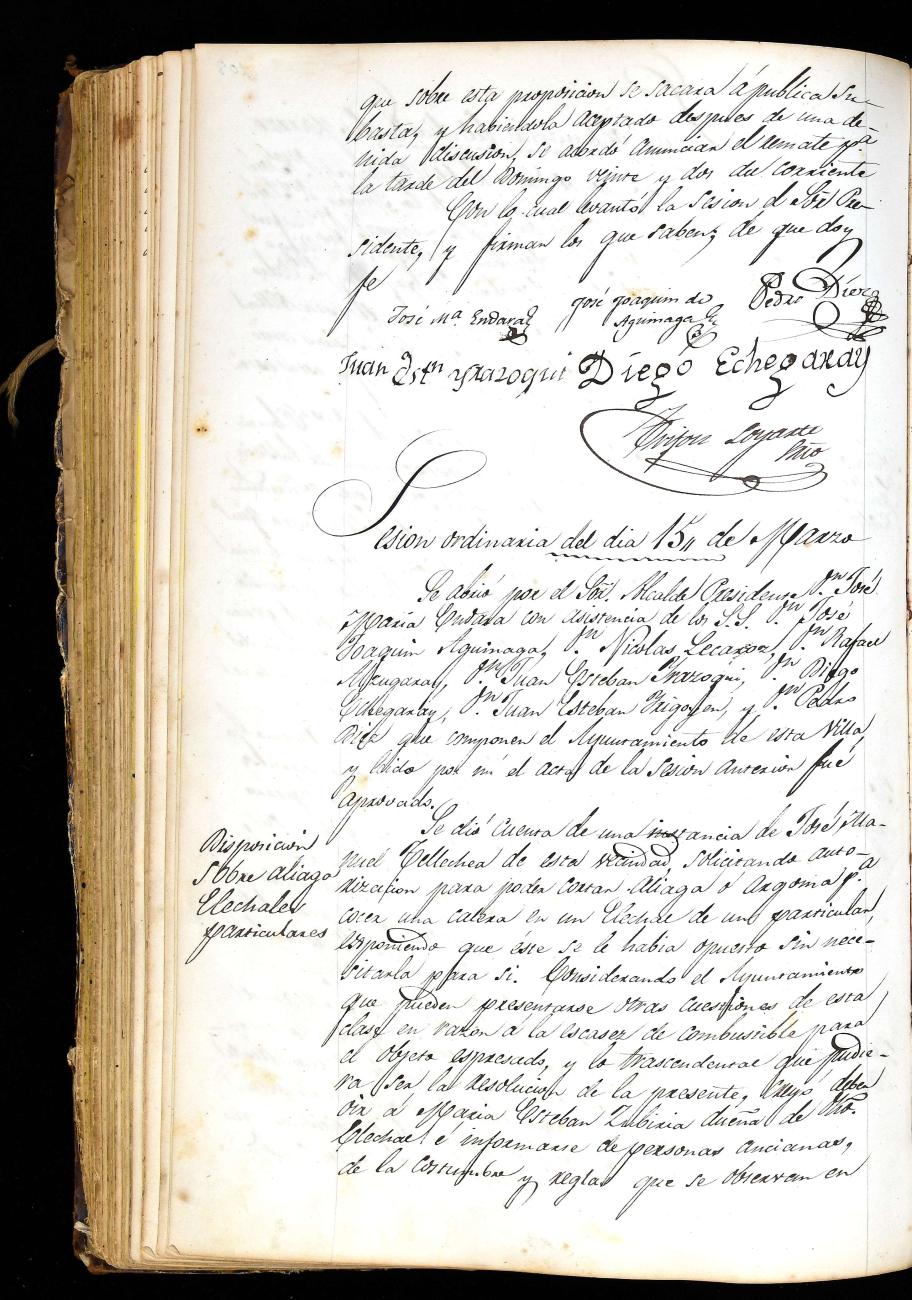 que sobre esta proposicion se sacara á publica su-
basta, y habiendola aceptado despues de una de-
nida discusion, se acordó anunciar el remate pª
la tarde del Domingo veinte y dos del corriente
Con lo cual levantó la sesion el Sor. Pre-
sidente, y firman los que saben, de que doy
fe
José Mª. Endara
José Joaquim de
Aguinaga
Pedro Diez
Juan Estn Yrazoqui Diego Echegaray
Loyarte
Srio
Sesion ordinaria del dia 15,, de Marzo
Se abrió por el Sor. Alcalde Presidente Dn. José
Maria Endara con asistencia de los S.S. Dn José
Joaquin Aguinaga, Dn. Nicolas Lecaroz, Dn. Rafael
Azugaray, Dn. Juan Esteban Yrazoqui, Dn. Diego
Echegaray, Dn. Juan Esteban Yrigoyen, y Dn. Pedro
Diez que componen el Ayuntamiento de esta Villa,
y leido por mi el acta de la Sesion anterior fué
aprovada.
Disposicion
sobre aliaga
Elechales
particulares
Se dió cuenta de una instancia de José Ma-
nuel Tellechea de esta vecindad, solicitando auto-
rizacion para poder cortar Aliaga o Argoma p.ª
cocer una calera en un Elechal de un particular,
esponiendo que éste se le habia opuesto sin nece-
sitarla para si. Considerando el Ayuntamiento
que pueden presentarse otras cuestiones de esta
clase en razon á la escasez de combustible para
el objeto espresado, y lo trascendental que pudie-
ra ser la resolucion de la presente, creyó deber
oir á Maria Esteban Zubiria dueña de dho.
Elechal é informarse de personas ancianas,
de la costumbre y reglas que se observan en